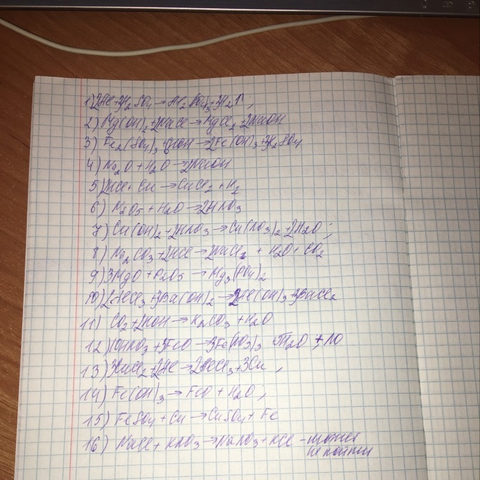 1) 2Al+3H₂SO₄→Al₂(SO₄)₃+3H₂↑,
2) Mg(OH)₂+2NaCl→MgCl₂+2NaOH
3) Fe₂(SO₄)₃+6KOH→2Fe(OH)₃+3K₂SO₄
4) Na₂O+H₂O→2NaOH
5) 2HCl+Cu→CuCl₂+H₂
6) N₂O₅+H₂O→2HNO₃
7) Cu(OH)₂+2HNO₃→Cu(NO₃)₂+2H₂O,
8) Na₂CO₃+2HCl→2NaCl + H₂O+CO₂
9) 3MgO+P₂O₅→Mg₃(PO₄)₂
10) 2AlCl₃+3Ba(OH)₂→2Al(OH)₃+3BaCl₂
11) CO₂+2KOH→K₂CO₃+H₂O
12) 10HNO₃+3FeO→3Fe(NO₃)₃+5H₂O+NO
13) 3CuCl₂+2Al→2AlCl₃+3Cu,
14) Fe(OH)₃→FeO+H₂O,
15) FeSO₄+Cu→CuSO₄+Fe
16) NaCl+KNO₃→NaNO₃+KCl - может
не пойти